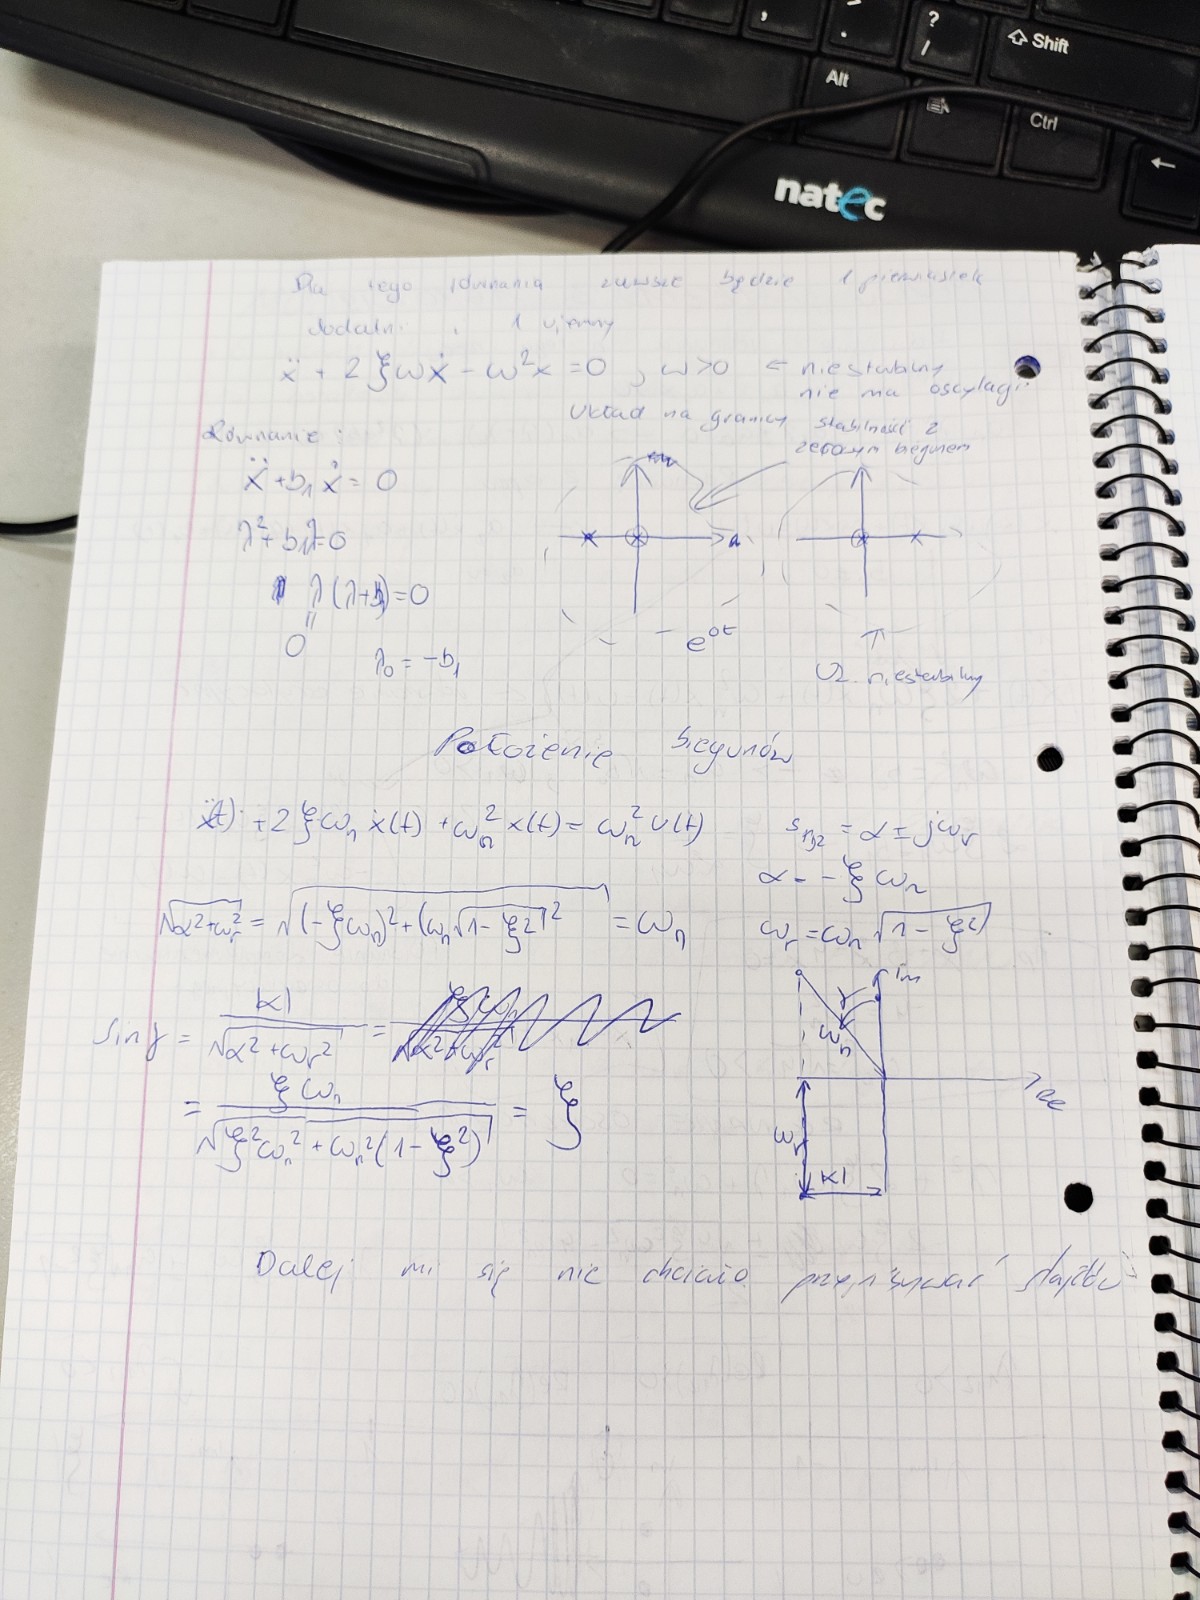 , < . ? / ⇧ Shift
Alt Ctrl ←
natec
Dla tego równania zawsze będzie 1 pierwiastek
dodatni i 1 ujemny
ẍ + 2ξωẋ - ω²x = 0 , ω>0 ← niestabilny
nie ma oscylacji
Układ na granicy stabilności z
zerowym biegunem
Równanie:
ẍ + b₁ẋ = 0
λ² + b₁λ = 0
λ(λ+b₁) = 0
"
0
λ₀ = -b₁
e^{0t}
↑
Uz. niestabilny
Położenie biegunów
ẍ(t) + 2ξωₙẋ(t) + ωₙ²x(t) = ωₙ²u(t)
s₁,₂ = α ± jωᵣ
α = -ξωₙ
√(α²+ωᵣ²) = √((-ξωₙ)² + (ωₙ√(1-ξ²))²) = ωₙ
ωᵣ = ωₙ√(1-ξ²)
sinγ = |α| / √(α²+ωᵣ²) =
= ξωₙ / √(ξ²ωₙ² + ωₙ²(1-ξ²)) = ξ
Im
γ
ωₙ
Re
ωᵣ
|α|
Dalej mi się nie chciało przepisywać slajdów